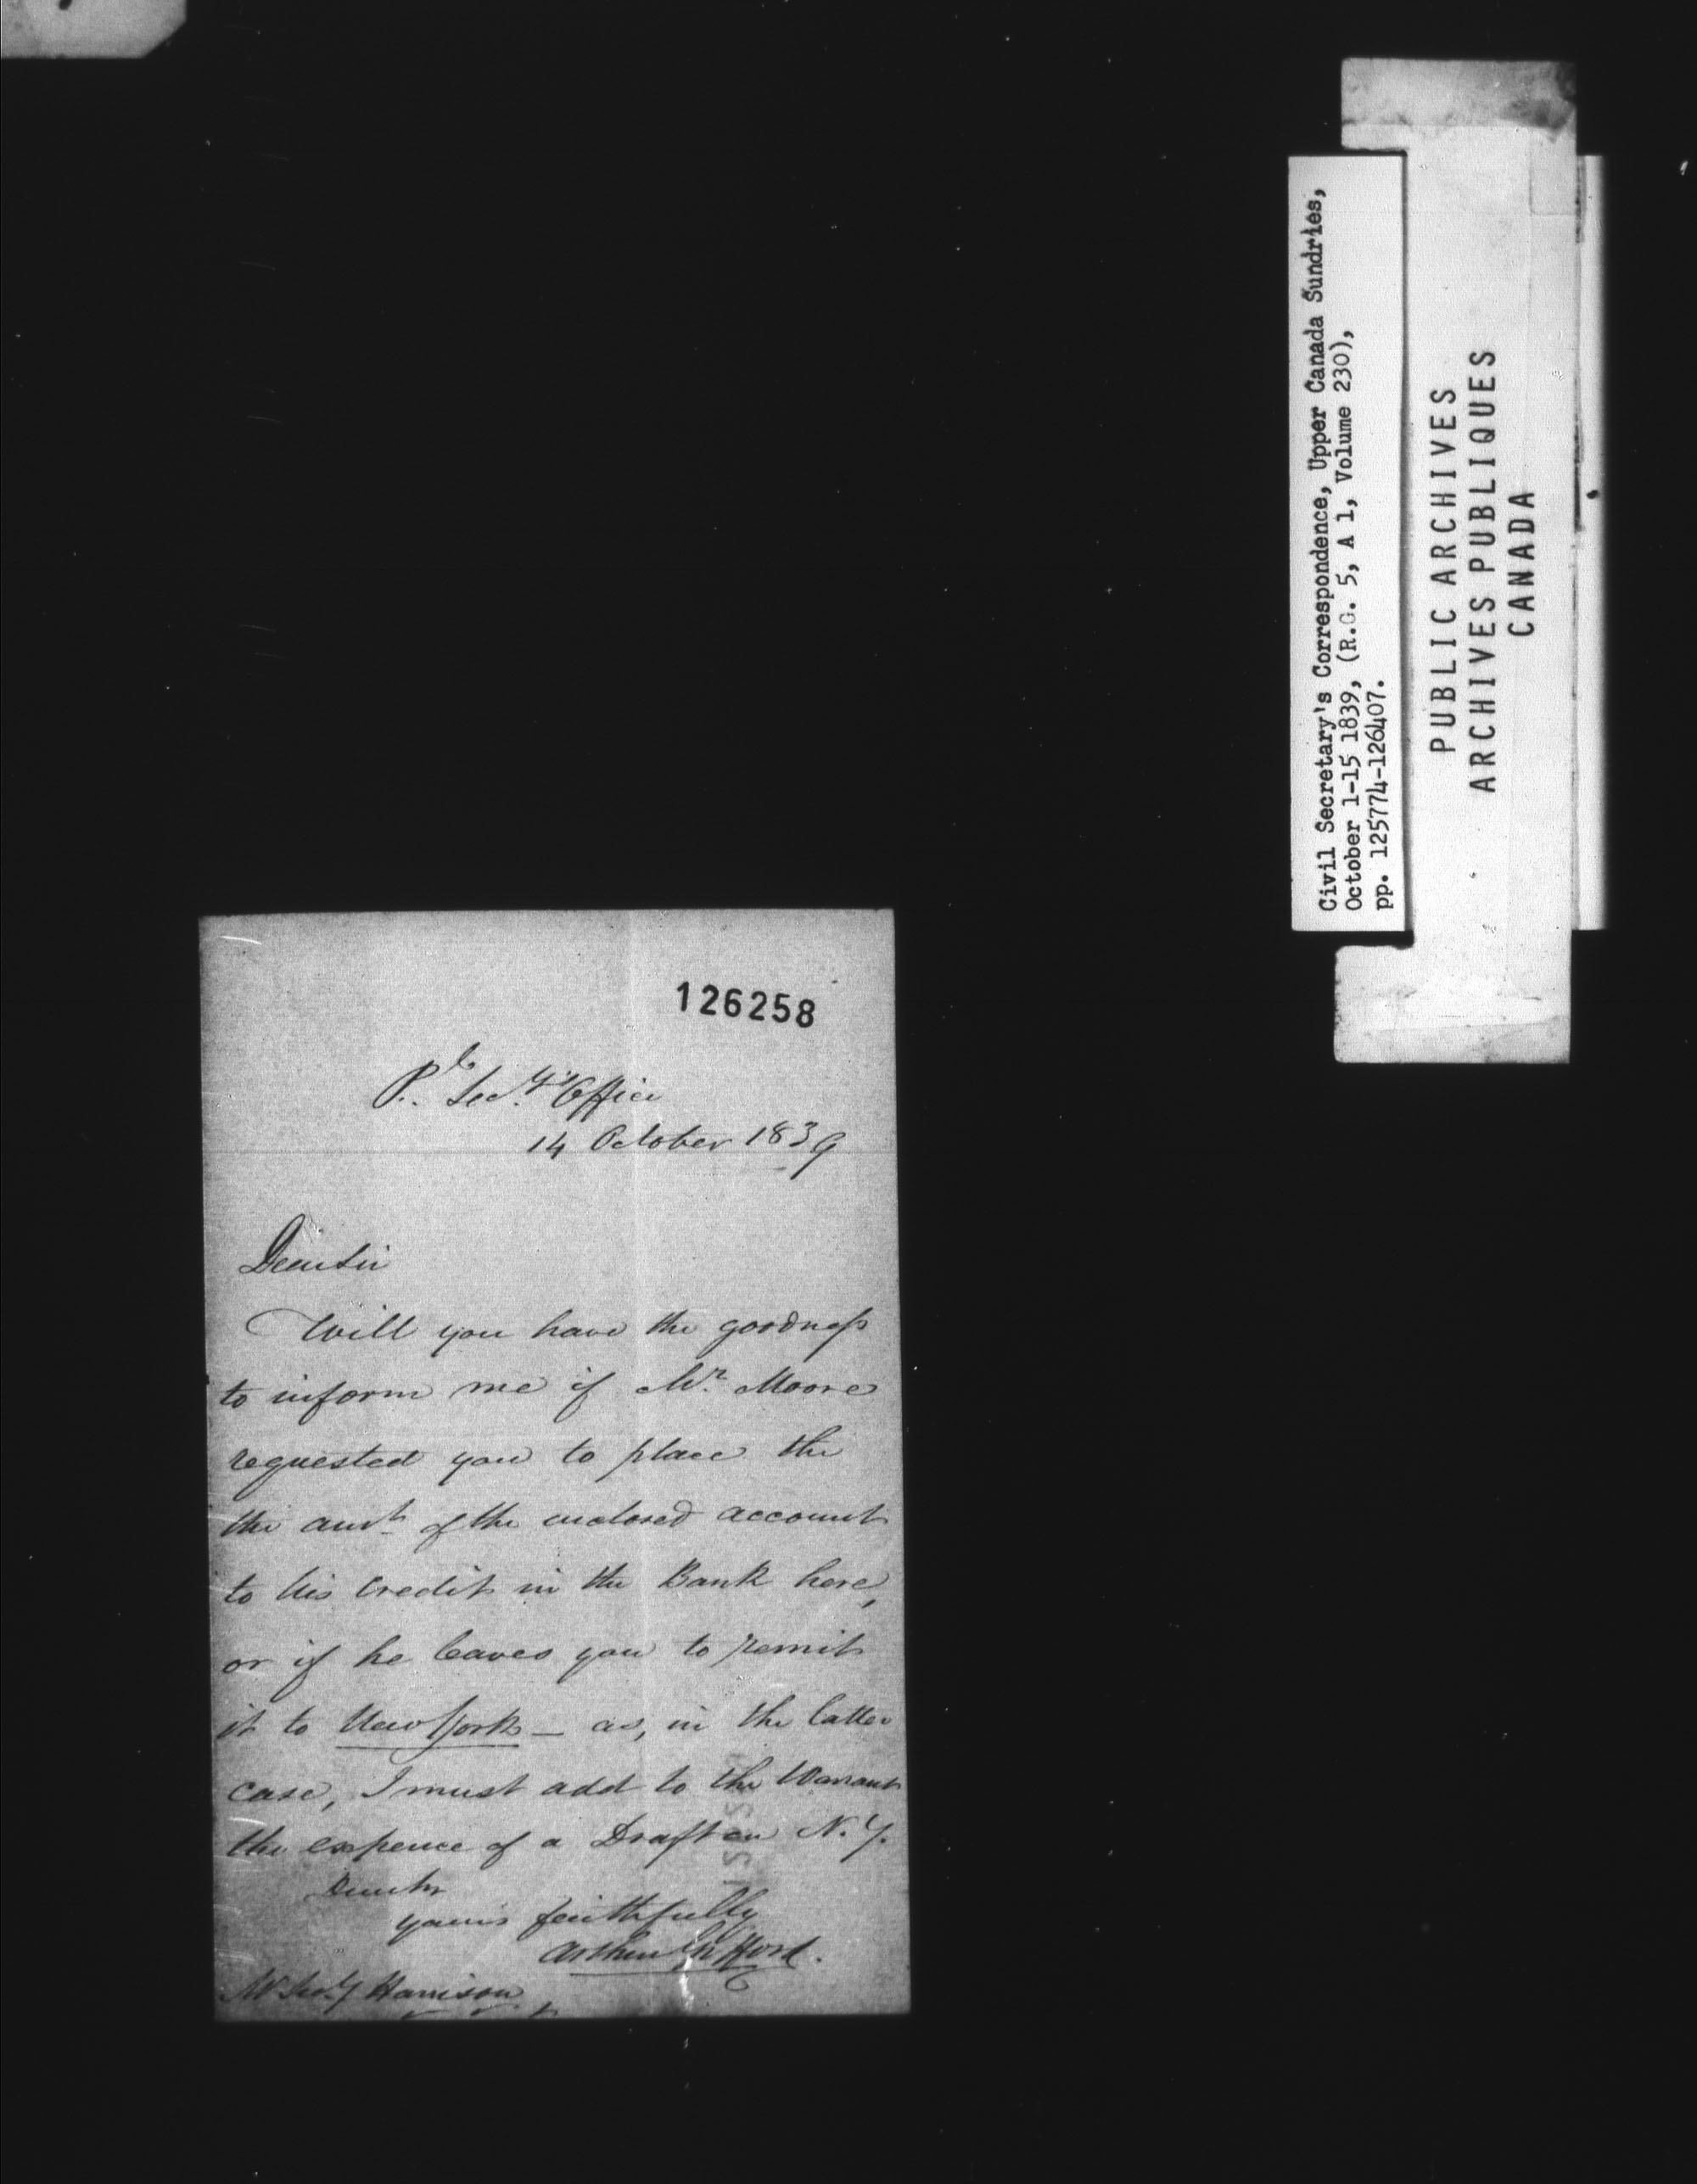 126258
P.le Sec.y's Office
14 October 1839
Dear Sir
Will you have the goodness
to inform me if Mr. Moore
requested you to place the
the amt. of the enclosed account
to his credit in the Bank here,
or if he leaves you to remit
it to New York — as, in the latter
case, I must add to the Warrant
the expence of a Draft on N.Y.
Dear Sir
yours faithfully
Arthur Gifford.
Mr Secy Harrison
Civil Secretary's Correspondence, Upper Canada Sundries,
October 1-15 1839, (R.G. 5, A 1, Volume 230),
pp. 125774-126407.
PUBLIC ARCHIVES
ARCHIVES PUBLIQUES
CANADA